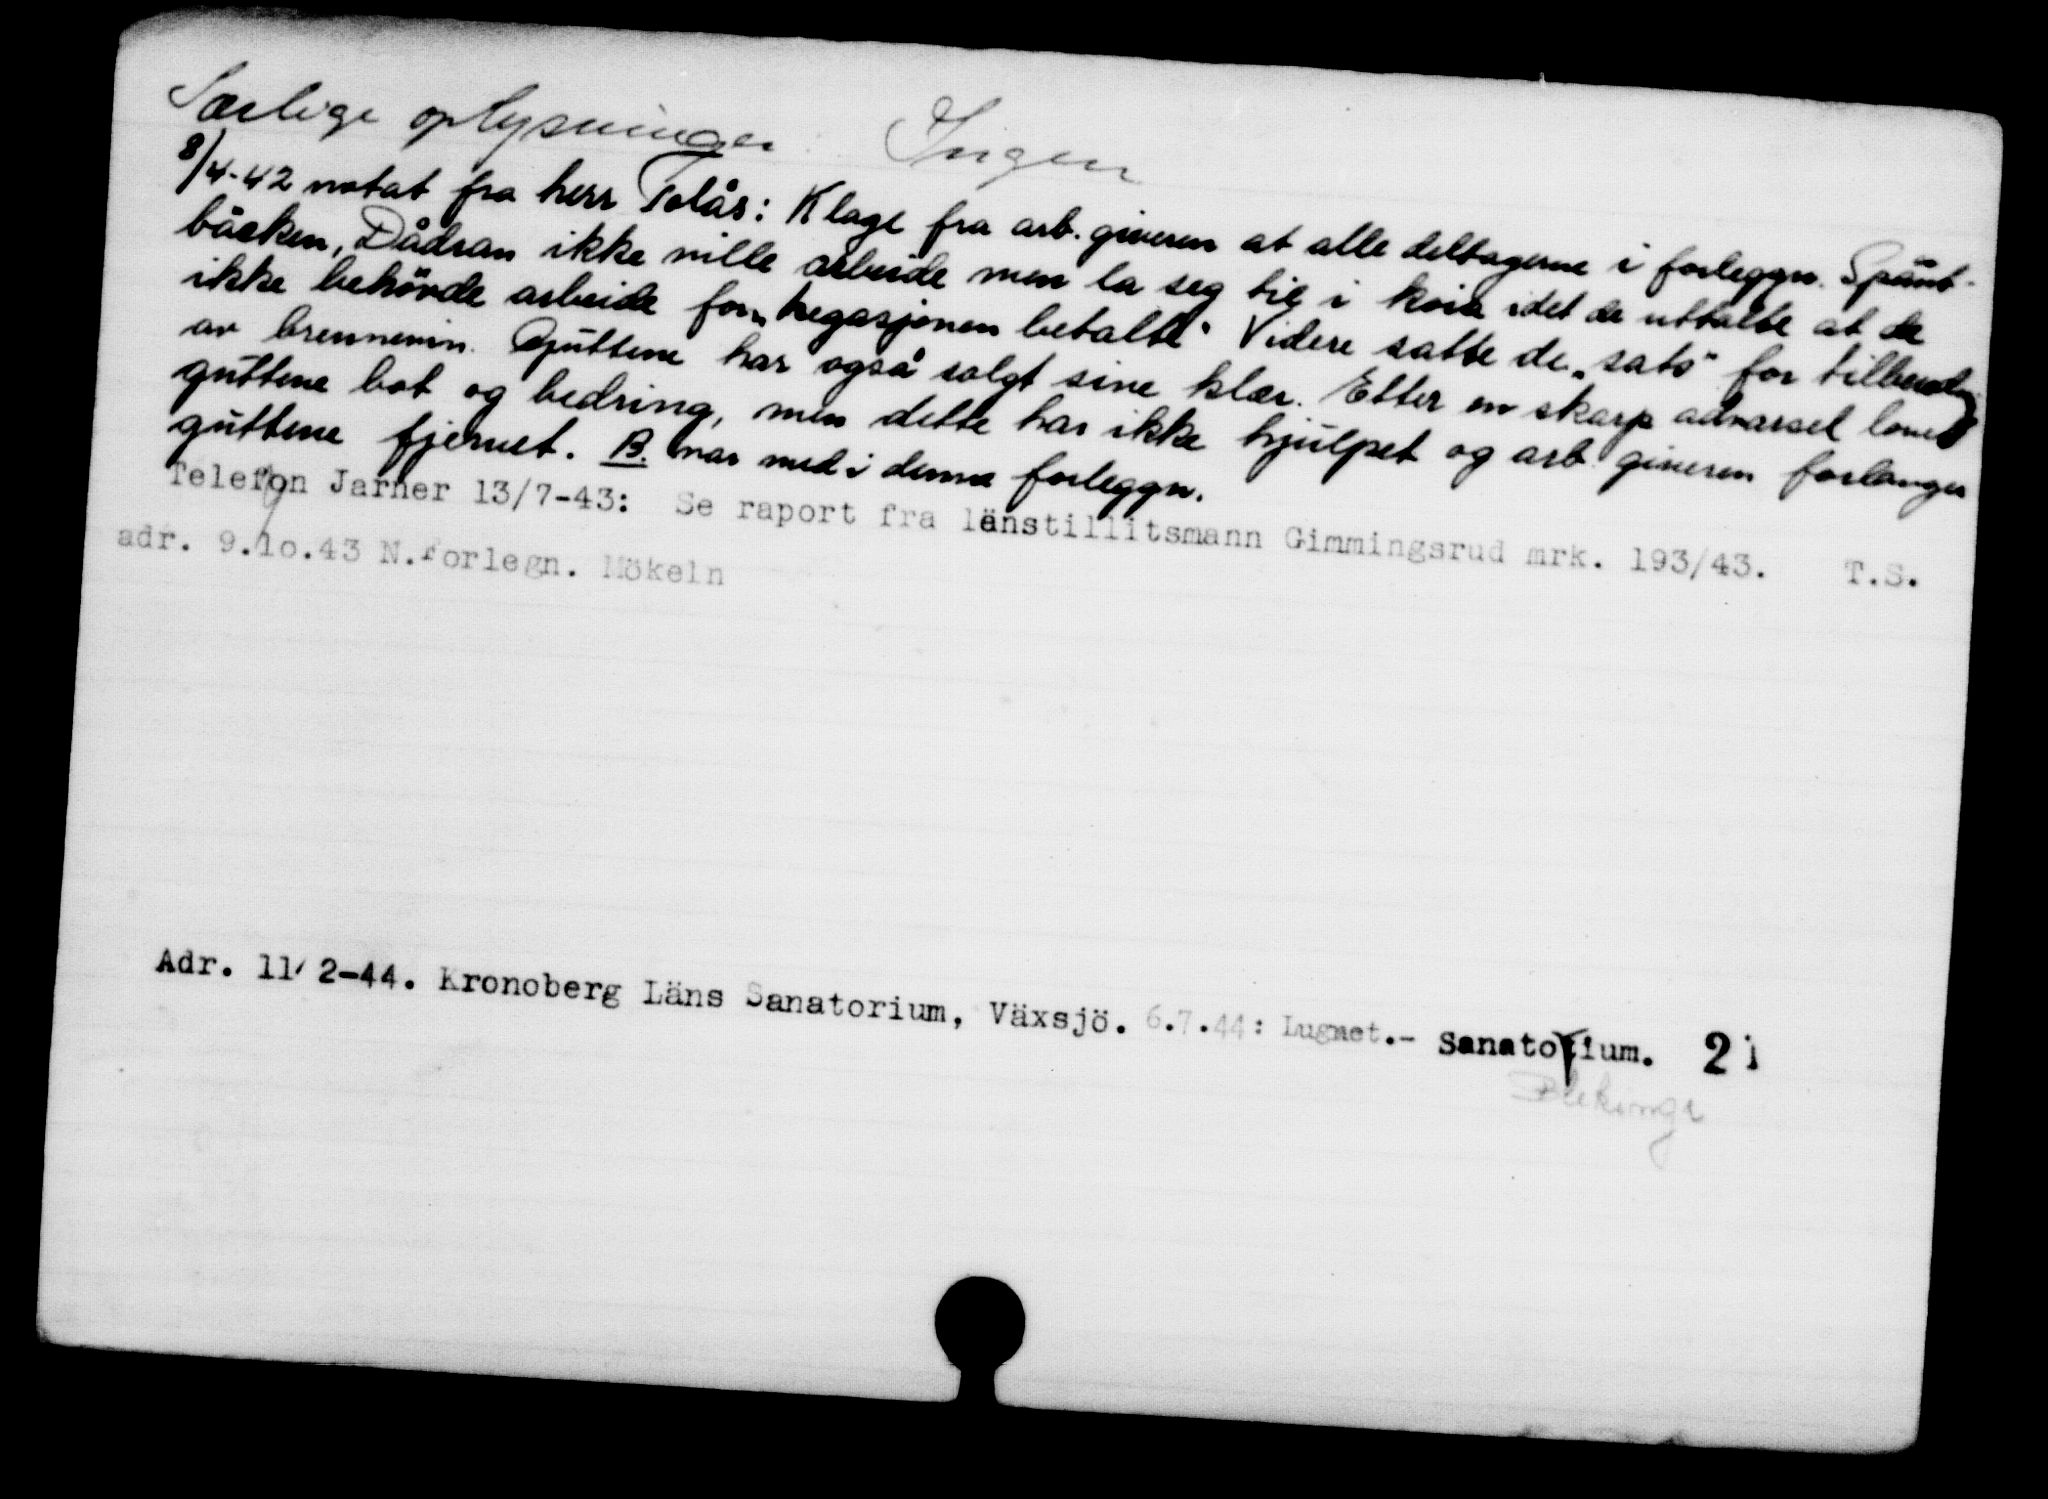 Særlige oplysninger Ingen
8/4-42 notat fra herr Tolås: Klage fra arb.giveren at alle deltagerne i forleggn. Spänt-
bäcken, Dådran ikke ville arbeide men la seg til i koia idet de uttalte at de
ikke behövde arbeide for „Legasjonen betalte" Videre satte de „sats" for tilberedning
av brennevin. Guttene har også solgt sine klær. Etter en skarp advarsel lovet
guttene bot og bedring, men dette har ikke hjulpet og arb.giveren forlanger
guttene fjernet. B. var med i denne forleggn.
Telefon Jarner 13/7-43: Se raport fra länstillitsmann Gimmingsrud mrk. 193/43. T.S.
adr. 9.10.43 N.Forlegn. Mökeln
Adr. 11/2-44. Kronoberg Läns Sanatorium, Växsjö. 6.7.44: Lugnet.- Sanatorium. 21
Blekinge